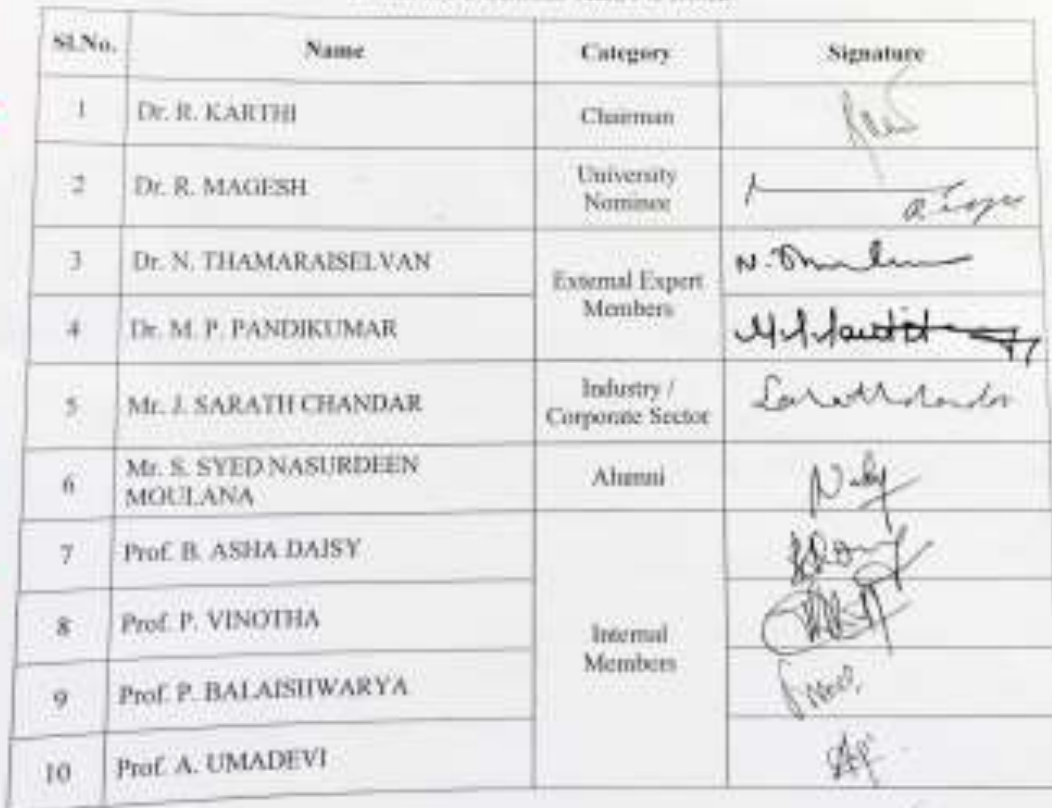 Sl.No. Name Category Signature
1 Dr. R. KARTHI Chairman
2 Dr. R. MAGESH University
Nominee
3 Dr. N. THAMARAISELVAN External Expert
Members
4 Dr. M. P. PANDIKUMAR
5 Mr. J. SARATH CHANDAR Industry /
Corporate Sector
6 Mr. S. SYED NASURDEEN
MOULANA Alumni
7 Prof. B. ASHA DAISY Internal
Members
8 Prof. P. VINOTHA
9 Prof. P. BALAISHWARYA
10 Prof. A. UMADEVI